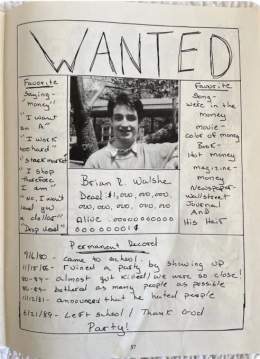 WANTED
Favorite
Saying -
"money"
"I want
an A"
"I work
too hard"
"stock market"
"I shop
therefore
I am"
"no, I won't
lend you
a dollar"
"Drop dead"
Brian R. Walshe
Dead $1,000,000,
000,000,000,000
Alive - 0000000000
Favorite
Song -
We're in the
money
movie -
color of money
Book -
Hot money
magazine -
money
Newspaper -
Wallstreet
Journal
AND
His Hair
Permanent Record
9/6/80 - came to school
11/15/86 - ruined a party by showing up
80-89 - almost got killed / we were so close!
80-89 - bothered as many people as possible
announced that he hated people
6/21/89 - Left school / Thank God
Party!
37